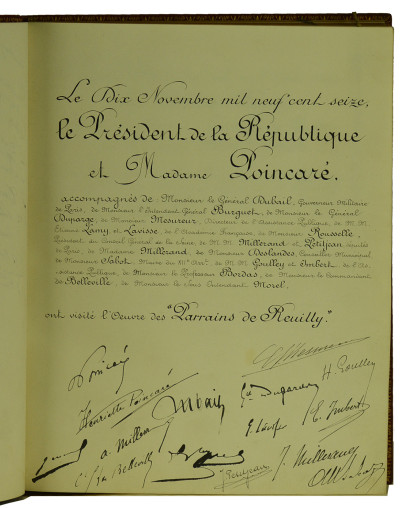 Le Dix Novembre mil neuf cent seize,
le Président de la République
et Madame Poincaré,
accompagnés de Monsieur le Général Dubail, Gouverneur Militaire
de Paris, de Monsieur l'Intendant Général Burguet, de Monsieur le Général
Duparge, de Monsieur Mesureur, Directeur de l'Assistance Publique, de M.M.
Etienne Lamy et Lavisse, de l'Académie Française, de Monsieur Rousselle,
Président du Conseil Général de la Seine, de M.M. Millerand et Petitjean,
de Paris, de Madame Millerand, de Monsieur Deslandres, Conseiller Municipal,
de Monsieur Sabot, Maire du de M.M. Goulley et Imbert, de l'As-
sistance Publique, de Monsieur le Professeur Bordas, de Monsieur le Commandant
de Belleville, de Monsieur le Sous Intendant Morel,
ont visité l'Oeuvre des "Parrains de Reuilly".
Poincaré
Henriette Poincaré
Dubail
Gal Duparge
H. Goulley
a. Millerand
E. Lavisse
E. Imbert
Petitjean
J. Millerand